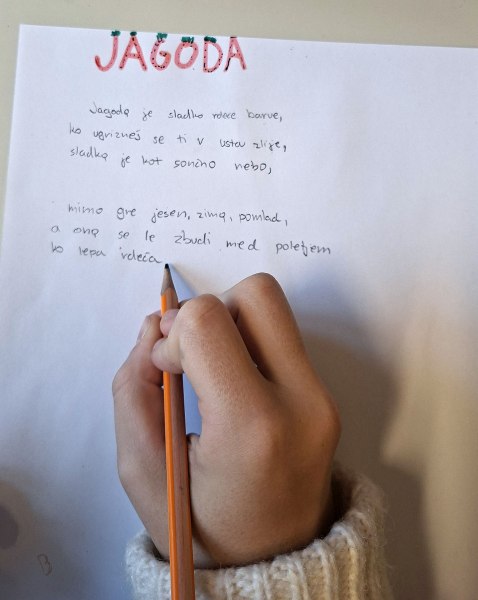 JAGODA
Jagoda je sladko rdeče barve,
ko ugrizneš se ti v usta zlije,
sladka je kot sončno nebo,
mimo gre jesen, zima, pomlad,
a ona se le zbudi med poletjem
ko lepa rdeča
B